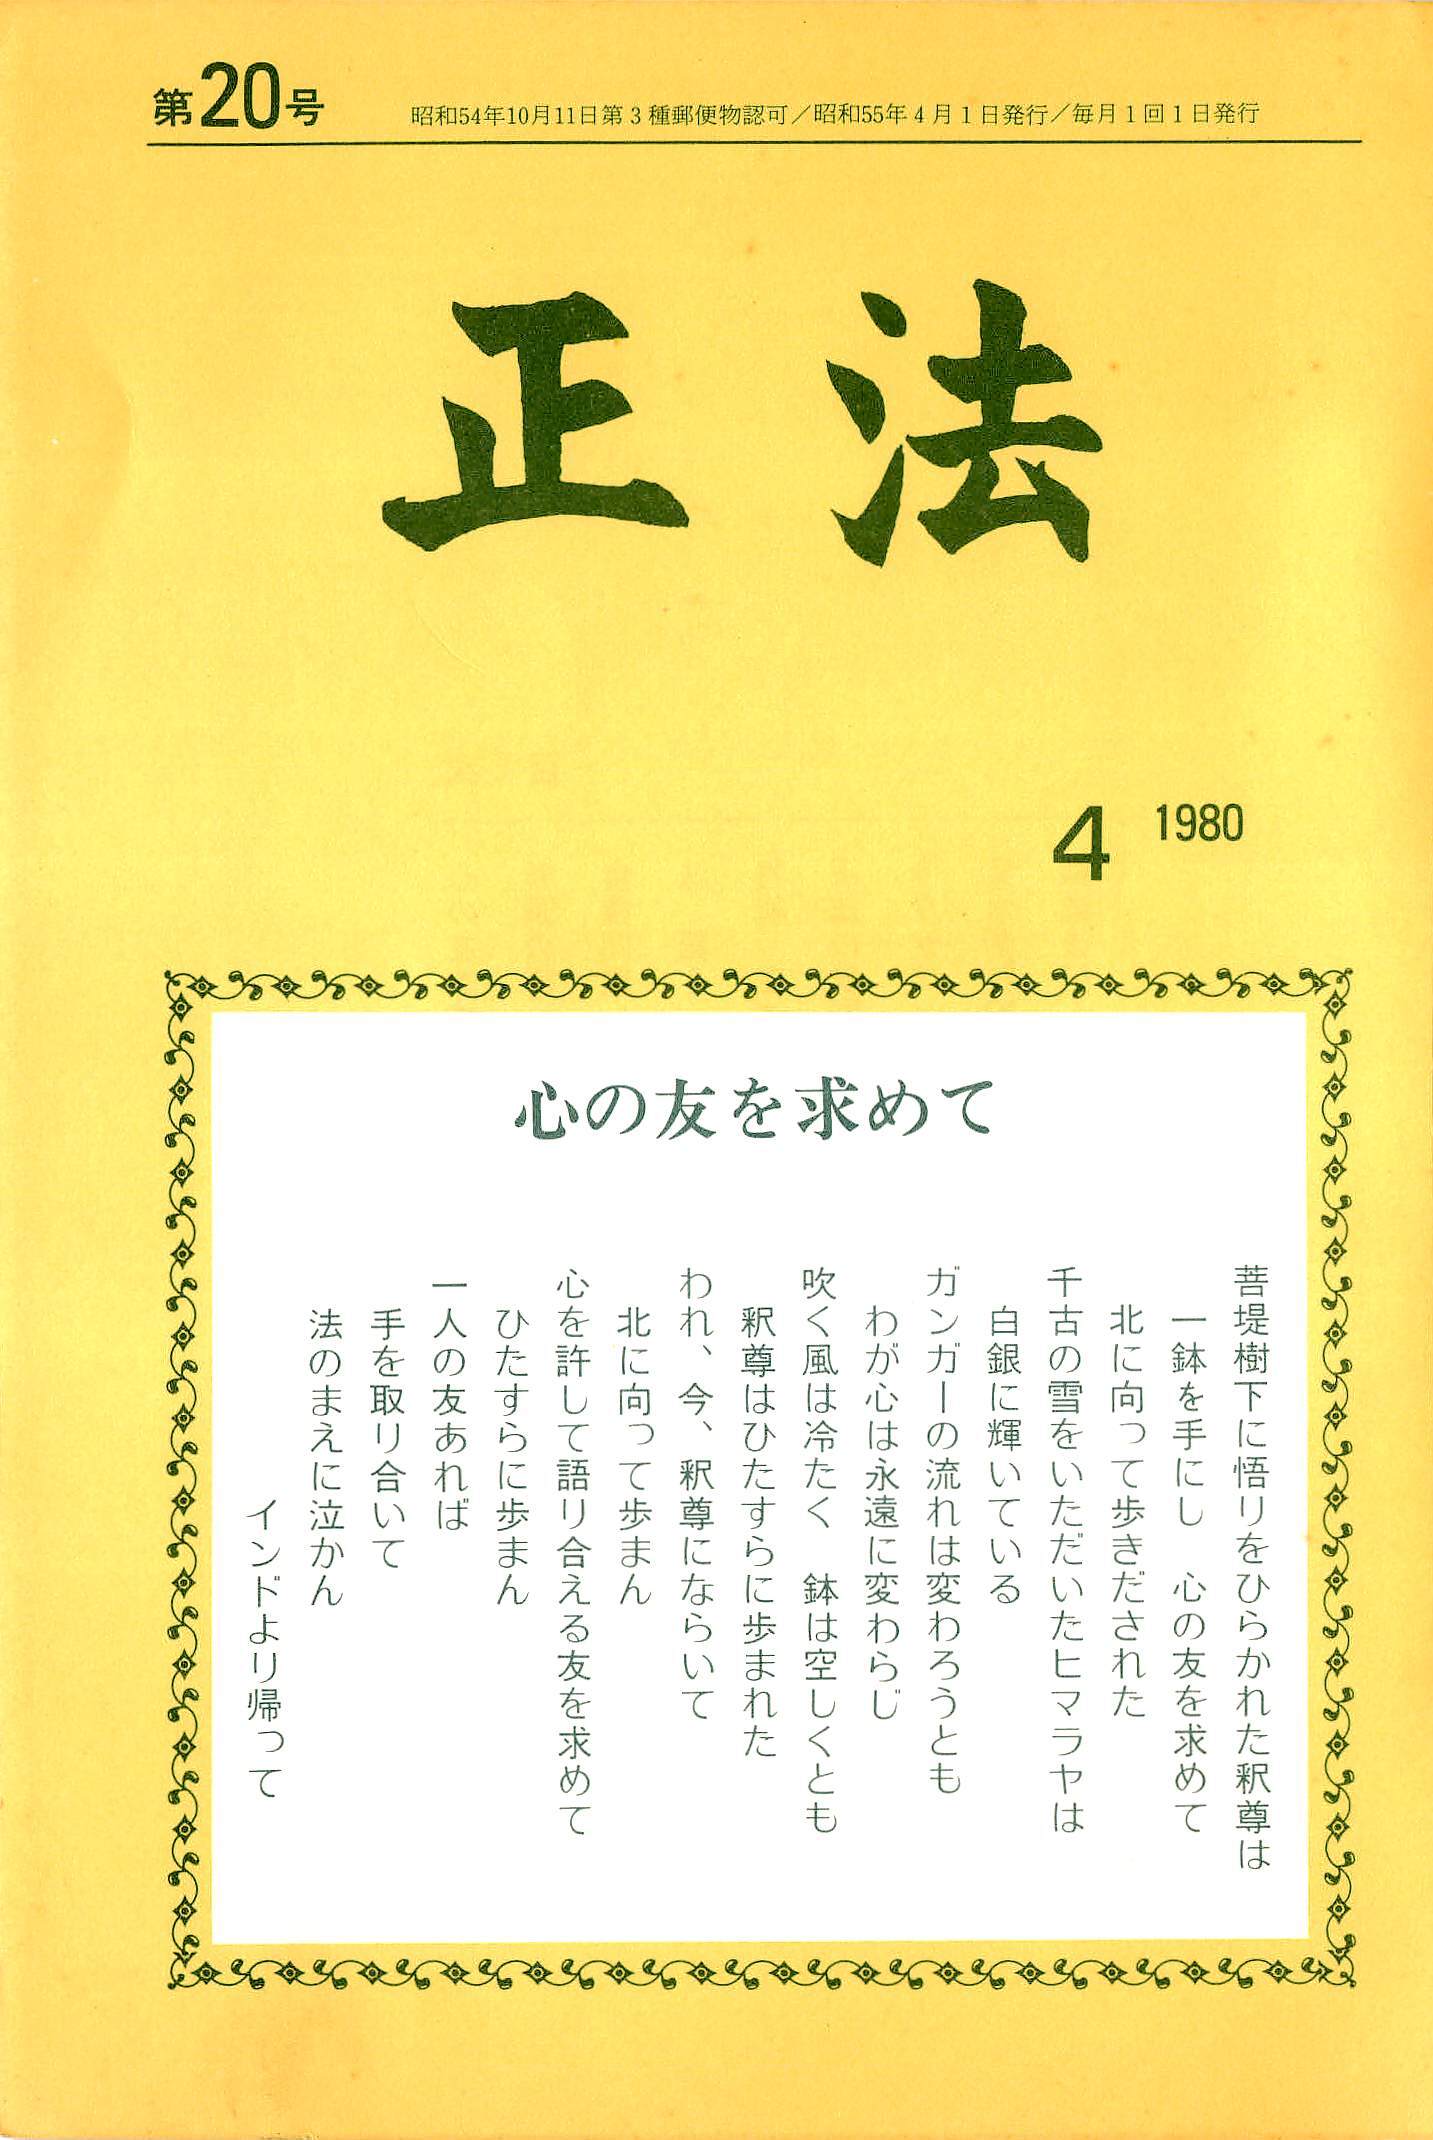 第20号
昭和54年10月11日第3種郵便物認可／昭和55年4月1日発行／毎月1回1日発行
正法
4 1980
心の友を求めて
菩提樹下に悟りをひらかれた釈尊は
一鉢を手にし　心の友を求めて
北に向って歩きだされた
千古の雪をいただいたヒマラヤは
白銀に輝いている
ガンガーの流れは変わろうとも
わが心は永遠に変わらじ
吹く風は冷たく　鉢は空しくとも
釈尊はひたすらに歩まれた
われ、今、釈尊にならいて
北に向って歩まん
心を許して語り合える友を求めて
ひたすらに歩まん
一人の友あれば
手を取り合いて
法のまえに泣かん
インドより帰って